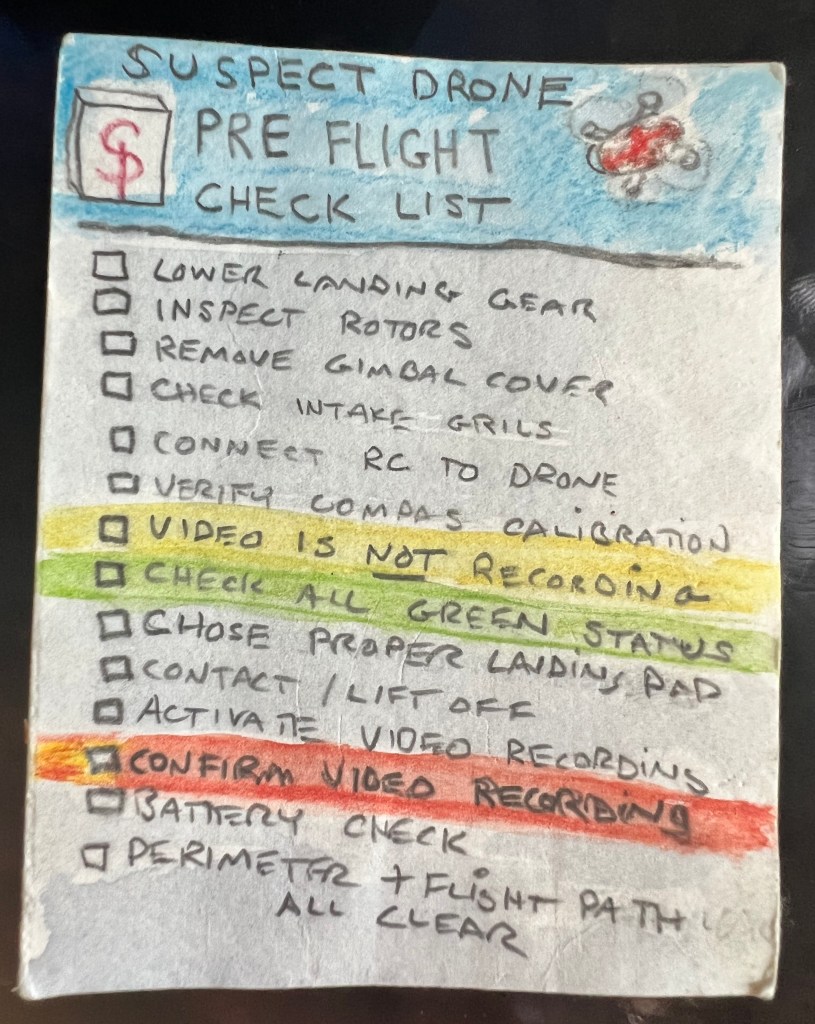 SUSPECT DRONE
PRE FLIGHT
CHECK LIST
LOWER LANDING GEAR
INSPECT ROTORS
REMOVE GIMBAL COVER
CHECK INTAKE GRILS
CONNECT RC TO DRONE
VERIFY COMPAS CALIBRATION
VIDEO IS NOT RECORDING
CHECK ALL GREEN STATUS
CHOSE PROPER LANDING PAD
CONTACT / LIFT OFF
ACTIVATE VIDEO RECORDING
CONFIRM VIDEO RECORDING
BATTERY CHECK
PERIMETER + FLIGHT PATH
ALL CLEAR